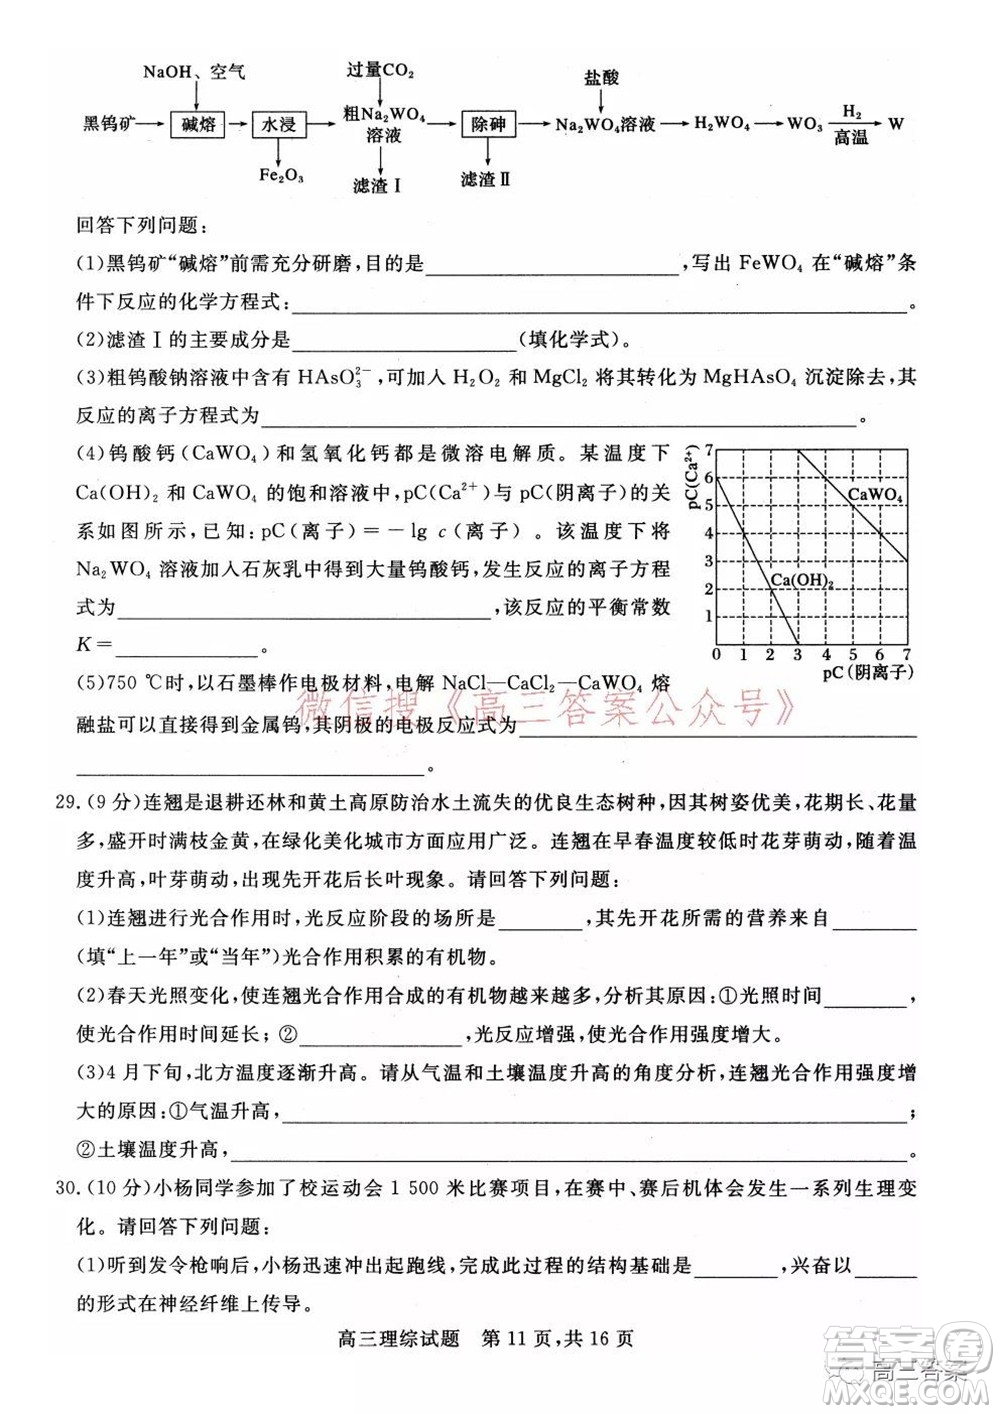 NaOH、空气 过量CO₂ 盐酸
黑钨矿 → 碱熔 → 水浸 → 粗Na₂WO₄溶液 → 除砷 → Na₂WO₄溶液 → H₂WO₄ → WO₃ H₂ 高温 → W
Fe₂O₃ 滤渣Ⅰ 滤渣Ⅱ
回答下列问题:
(1)黑钨矿“碱熔”前需充分研磨,目的是________,写出 FeWO₄ 在“碱熔”条
件下反应的化学方程式:________。
(2)滤渣Ⅰ的主要成分是________(填化学式)。
(3)粗钨酸钠溶液中含有 HAsO₃²⁻,可加入 H₂O₂ 和 MgCl₂ 将其转化为 MgHAsO₄ 沉淀除去,其
反应的离子方程式为________。
(4)钨酸钙(CaWO₄)和氢氧化钙都是微溶电解质。某温度下
Ca(OH)₂ 和 CaWO₄ 的饱和溶液中,pC(Ca²⁺)与 pC(阴离子)的关
系如图所示,已知:pC(离子)=-lg c(离子)。该温度下将
Na₂WO₄ 溶液加入石灰乳中得到大量钨酸钙,发生反应的离子方程
式为________,该反应的平衡常数
K=________。
pC(Ca²⁺)
7
6
5
4
3
2
1
CaWO₄
Ca(OH)₂
0 1 2 3 4 5 6 7
pC(阴离子)
(5)750 ℃时,以石墨棒作电极材料,电解 NaCl—CaCl₂—CaWO₄ 熔
融盐可以直接得到金属钨,其阴极的电极反应式为________
________。
微信搜《高三答案公众号》
29.(9 分)连翘是退耕还林和黄土高原防治水土流失的优良生态树种,因其树姿优美,花期长、花量
多,盛开时满枝金黄,在绿化美化城市方面应用广泛。连翘在早春温度较低时花芽萌动,随着温
度升高,叶芽萌动,出现先开花后长叶现象。请回答下列问题:
(1)连翘进行光合作用时,光反应阶段的场所是________,其先开花所需的营养来自________
(填“上一年”或“当年”)光合作用积累的有机物。
(2)春天光照变化,使连翘光合作用合成的有机物越来越多,分析其原因:①光照时间________,
使光合作用时间延长;②________,光反应增强,使光合作用强度增大。
(3)4 月下旬,北方温度逐渐升高。请从气温和土壤温度升高的角度分析,连翘光合作用强度增
大的原因:①气温升高,________;
②土壤温度升高,________。
30.(10 分)小杨同学参加了校运动会 1 500 米比赛项目,在赛中、赛后机体会发生一系列生理变
化。请回答下列问题:
(1)听到发令枪响后,小杨迅速冲出起跑线,完成此过程的结构基础是________,兴奋以________
的形式在神经纤维上传导。
高三理综试题 第 11 页,共 16 页
高三答案
MXQE.COM